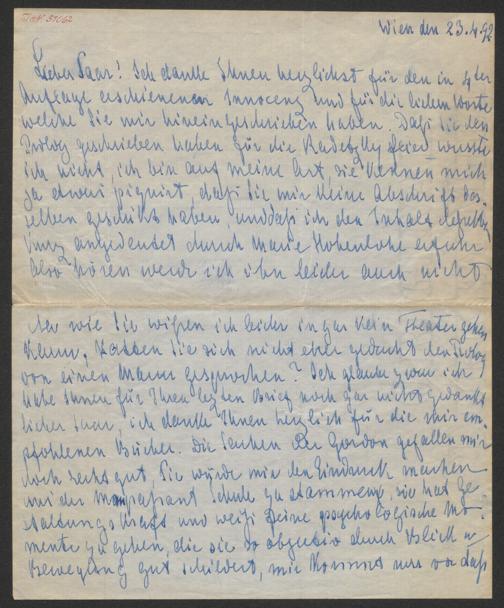 Wien den 23.4.92
Lieber Saar! Ich danke Ihnen herzlichst für den in 4ter
Auflage erschienenen Innocenz und für die lieben Worte
welche Sie mir hineingeschrieben haben. Daß Sie den
Prolog geschrieben haben für die Radetzky Feier wusste
ich nicht, ich bin auf meine Art, Sie kennen mich
ja etwas piquirt, daß Sie mir keine Abschrift des-
selben geschickt haben, und daß ich den Inhalt
nur angedeutet durch Marie Hohenlohe erfuhr
Also hören werde ich ihn leider auch nicht
da wie Sie wißen ich leider in gar kein Theater gehen
kann, hätten Sie sich nicht eher gedacht den Prolog
von einen Mann gesprochen? Ich glaube zwar ich
habe Ihnen für Ihren letzten Brief noch gar nicht gedankt
lieber Saar, ich danke Ihnen herzlich für die mir em-
pfohlenen Bücher. Die Sachen der Gordon gefallen mir
doch recht gut, Sie würde mir den Eindruck machen
aus der Maupassant Schule zu stammen, sie hat Ge-
staltungskraft und weiß feine psychologische Mo-
mente zu geben, die sie so objectiv durch Blick u
Bewegung gut schildert, mir kommt nur vor daß